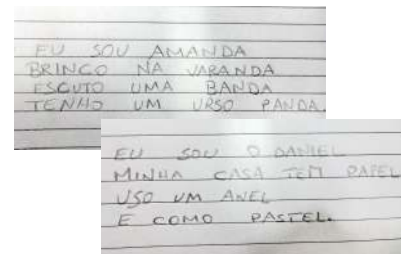 EU SOU AMANDA
BRINCO NA VARANDA
ESCUTO UMA BANDA
TENHO UM URSO PANDA.
EU SOU O DANIEL
MINHA CASA TEM PAPEL
USO UM ANEL
E COMO PASTEL.